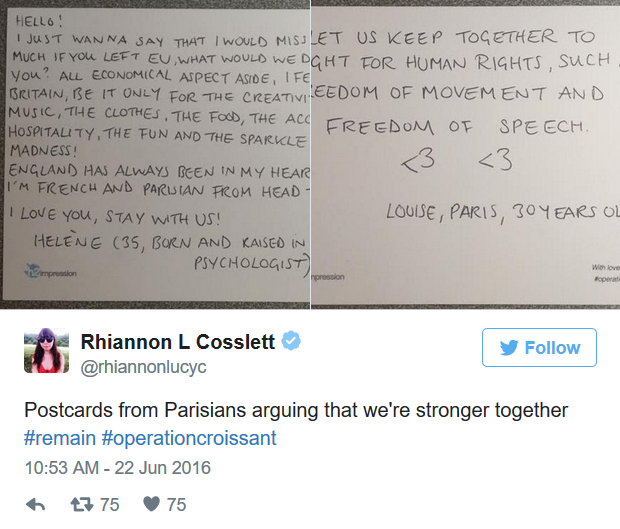 HELLO!
I JUST WANNA SAY THAT I WOULD MISS
MUCH IF YOU LEFT EU, WHAT WOULD WE D
YOU? ALL ECONOMICAL ASPECT ASIDE, I FE
BRITAIN, BE IT ONLY FOR THE CREATIVI
MUSIC, THE CLOTHES, THE FOOD, THE ACC
HOSPITALITY, THE FUN AND THE SPARKLE
MADNESS!
ENGLAND HAS ALWAYS BEEN IN MY HEAR
I'M FRENCH AND PARISIAN FROM HEAD
I LOVE YOU, STAY WITH US!
HELÈNE (35, BORN AND RAISED IN
PSYCHOLOGIST)
impression
LET US KEEP TOGETHER TO
GHT FOR HUMAN RIGHTS, SUCH
EEDOM OF MOVEMENT AND
FREEDOM OF SPEECH.
<3 <3
LOUISE, PARIS, 30 YEARS OL
With love
#operati
mpression
Rhiannon L Cosslett
@rhiannonlucyc
Follow
Postcards from Parisians arguing that we're stronger together
#remain #operationcroissant
10:53 AM - 22 Jun 2016
75 75